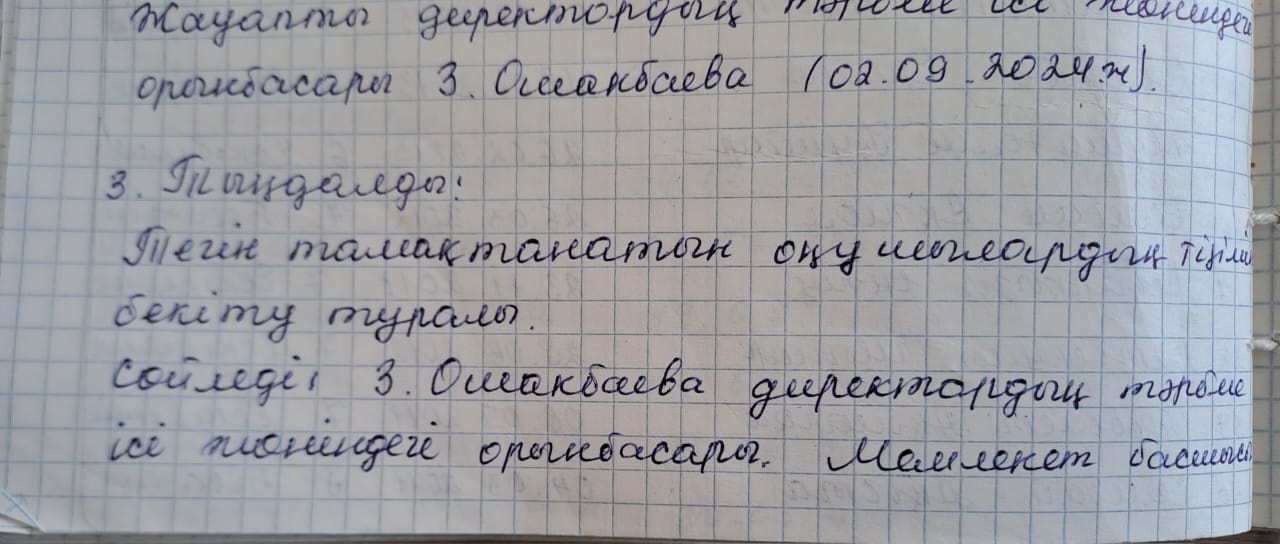 Жауапты директордың тәрбие ісі жөніндегі
орынбасары З. Ошакбаева (02.09.2024.ж).
3. Тыңдалды:
Тегін тамақтанатын оқушылардың тізімін
бекіту туралы.
Сөйледі: З. Ошакбаева директордың тәрбие
ісі жөніндегі орынбасары. Мемлекет басшысы